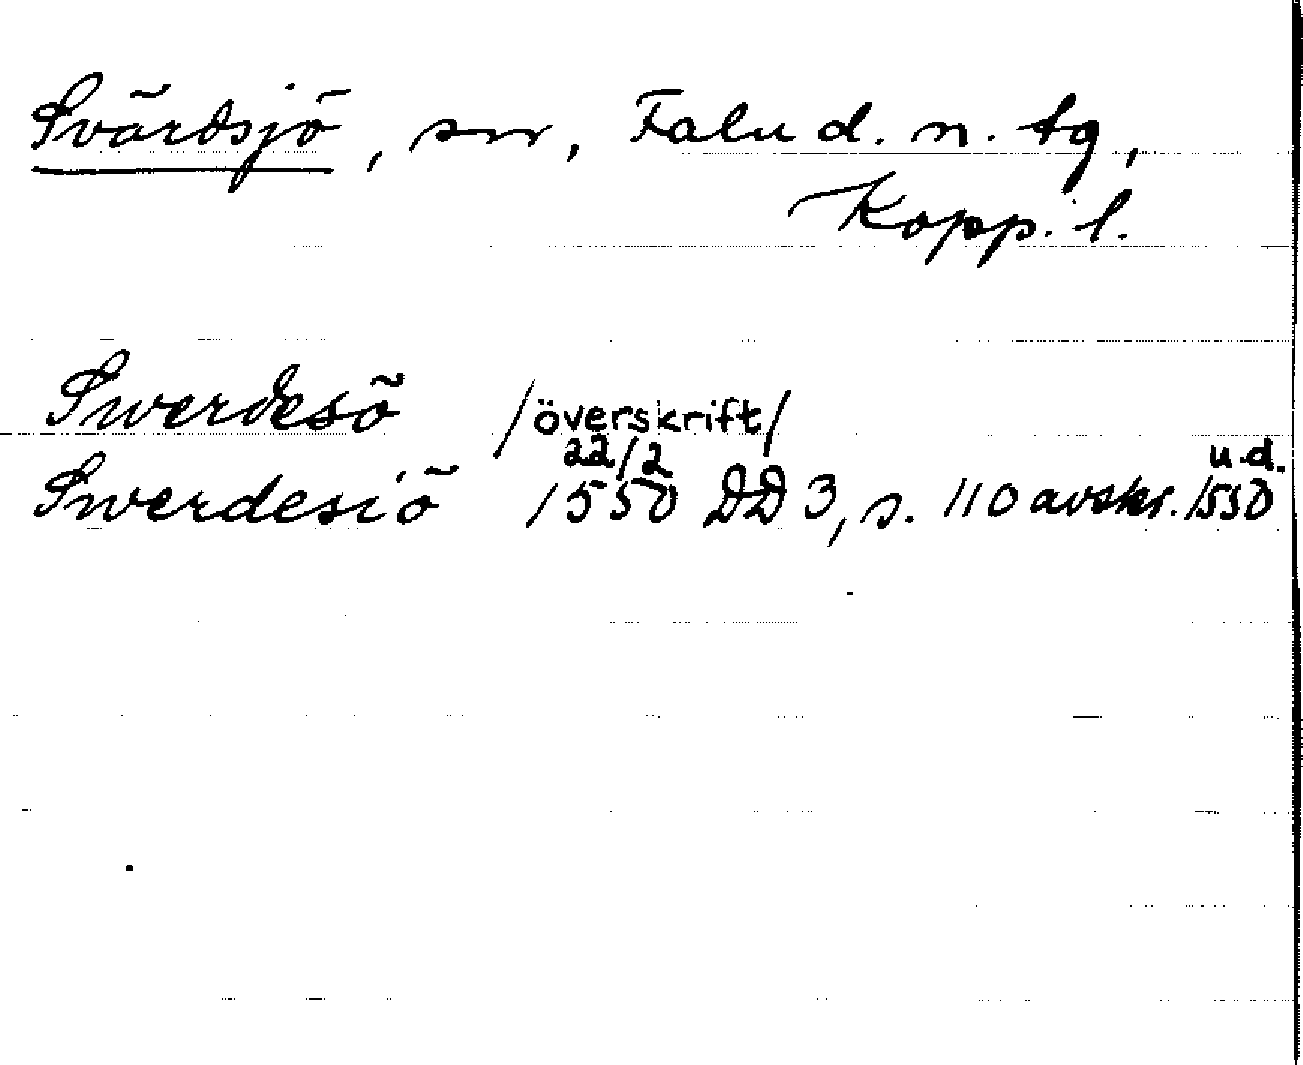 Svärdsjö, sn, Falu d. n. tg,
Kopp. l.
Swerdesö /överskrift/
22/2 u.d.
Swerdesiö 1550 DD 3, s. 110 avskr. 1550